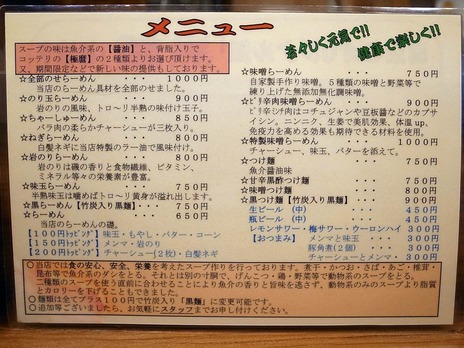 メニュー
若々しく元気で!!
健康で楽しく!!
スープの味は魚介系の【醤油】と、背脂入りで
コッテリの【極麿】の2種類よりお選び頂けます。
又、期間限定などで新しい味の提供もしております。
☆全部のせらーめん ・・・ 1000円
当店のらーめん具材を全のせました。
☆のり玉らーめん ・・・ 900円
岩のりの風味、トロ~リ半熟の味付け玉子。
☆ちゃーしゅーめん ・・・ 850円
バラ肉の柔らかチャーシューが三枚入り。
☆ねぎらーめん ・・・ 800円
白髪ネギに当店特製のラー油で風味付け。
☆岩のりらーめん ・・・ 800円
岩のりは磯の香りと食物繊維、ビタミン、
ミネラル等々の栄養素が豊富。
☆味玉らーめん ・・・ 750円
半熟味玉は噛めばトロ~リ黄身が溢れ出します。
☆黒らーめん【竹炭入り黒麺】・・・ 750円
☆らーめん ・・・ 650円
当店のらーめんの礎。
【100円トッピング】味玉・もやし・バター・コーン
【150円トッピング】メンマ・岩のり
【200円トッピング】チャーシュー(2枚)・白髪ネギ
☆味噌らーめん ・・・ 750円
自家製手作り味噌。5種類の味噌と野菜等で
練り上げた無添加無化調味噌。
☆ピリ辛肉味噌らーめん ・・・ 850円
ピリ辛ミンチ肉はコチュジャンや豆板醤などのカプサ
イシン。ニンニク、生姜で美肌効果、体温up、
免疫力を高める効果も期待できる材料を使用。
☆特製味噌らーめん ・・・ 950円
チャーシュー、味玉、バターを添えて。
☆つけ麺 ・・・ 750円
魚介醤油味
☆甘辛黒酢つけ麺 ・・・ 750円
☆味噌つけ麺 ・・・ 800円
☆黒つけ麺【竹炭入り黒麺】 850円
生ビール(中) 450円
瓶ビール(中) 450円
レモンサワー・梅サワー・ウーロンハイ 300円
【おつまみ】 メンマと味玉 300円
豚角煮(2個) 300円
チャーシューとメンマ 300円
○当店では食の安心、安全、栄養を考えたスープ作りを行っております。煮干・かつお・さば・あご・椎茸・
昆布等で魚介系のダシをとる。それとは別の寸胴で、げんこつ・鶏・野菜等で動物系のスープをとる。
二種類のスープを使う直前に合わせることにより魚介の香りと旨味を逃さず、動物系のみのスープより脂質
とカロリーを下げることもできました。
○麺類は全てプラス100円で竹炭入り「黒麺」に変更可能です。
○追加等ございましたら、お気軽にスタッフまでお申し付けください。